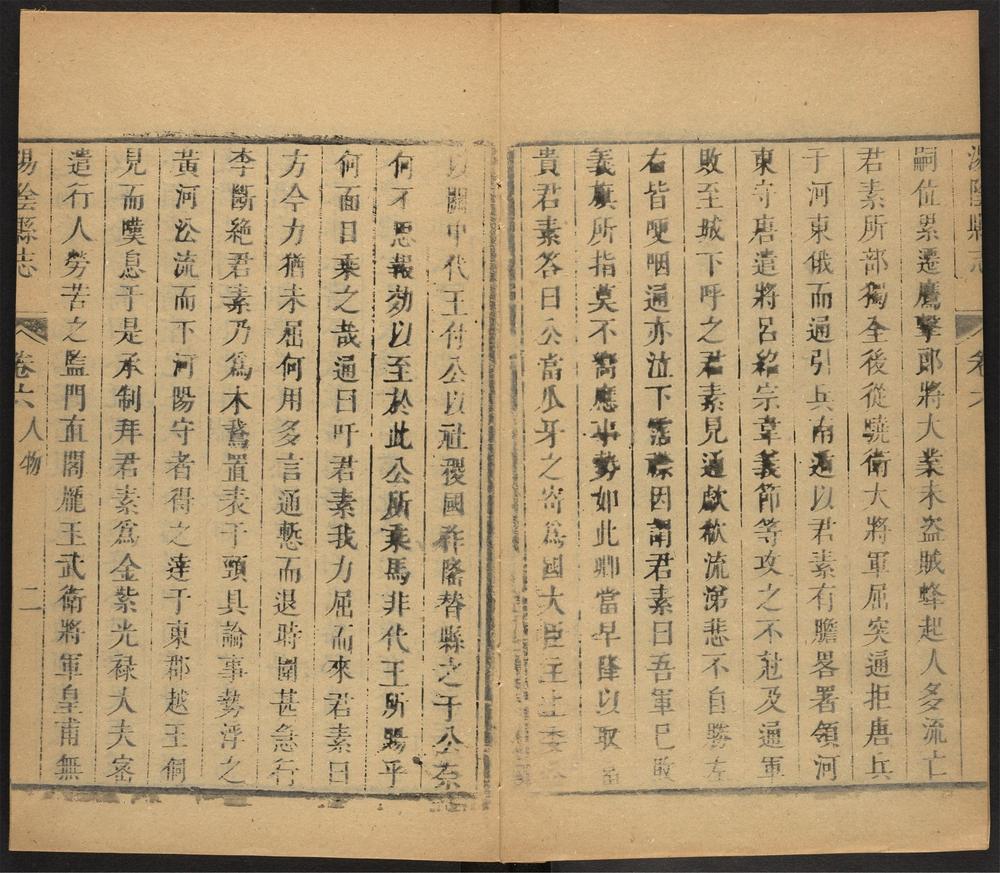 湯陰縣志 卷六
嗣位累遷鷹擊郎將大業末盜賊蜂起人多流亡
君素所部獨全後從驍衛大將軍屈突通拒唐兵
于河東俄而通引兵南遁以君素有膽畧署領河
東守唐遣將呂紹宗韋義節等攻之不克及通軍
敗至城下呼之君素見通歔欷流涕悲不自勝左
右皆哽咽通亦泣下霑襟因謂君素曰吾軍已敗
義旗所指莫不響應事勢如此卿當早降以取富
貴君素答曰公當爪牙之寄爲國大臣主上委
以關中代王付公以社稷國祚隆替縣之于公柰
何不思報効以至於此公所乘馬非代王所賜乎
何面目乘之哉通曰吁君素我力屈而來君素曰
方今力猶未屈何用多言通慙而退時圍甚急行
李斷絶君素乃爲木鵞置表于頸具論事勢浮之
黃河沿流而下河陽守者得之達于東郡越王侗
見而嘆息于是承制拜君素爲金紫光祿大夫密
遣行人勞苦之監門直閣龐玉武衛將軍皇甫無
湯陰縣志 卷六 人物 二